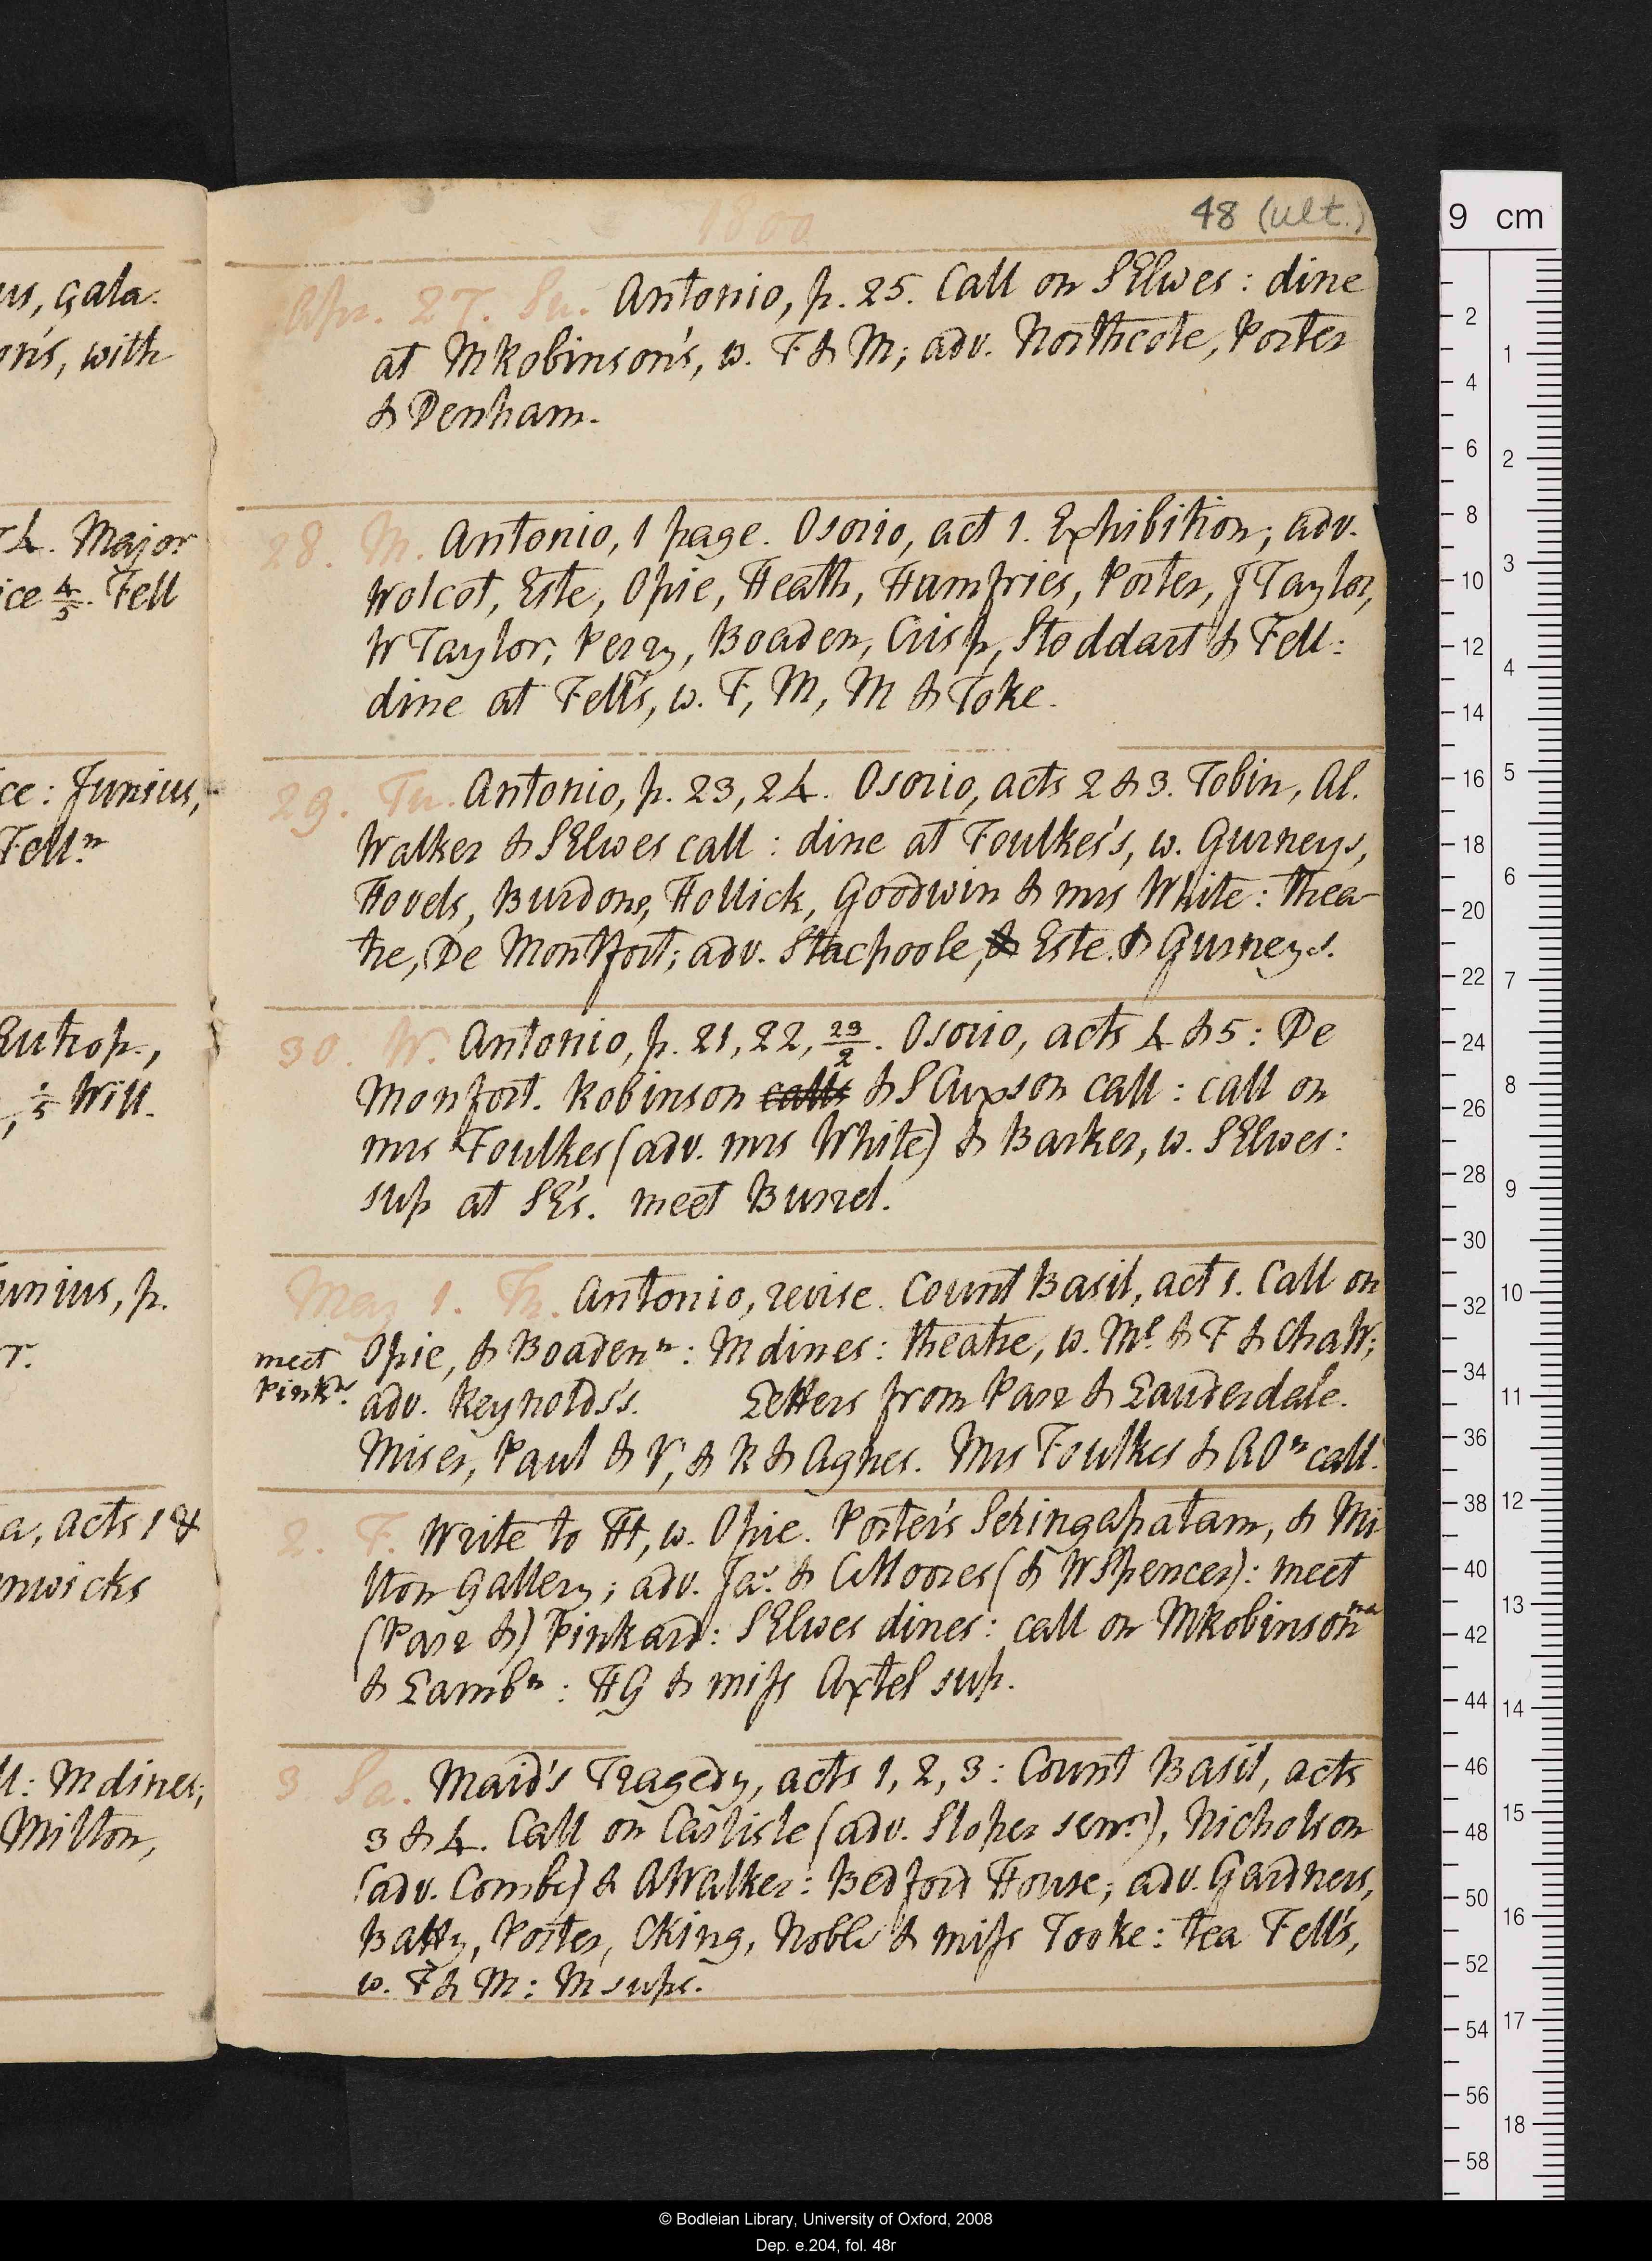 1800
48 (ult.)
us, Gala.
on's, with
Major
Fell
ce: Junius,
Fell.n
Eutrop.,
Will.
unius, p.
r.
a, acts 1 &
nwicks
M dines;
Milton,
Apr. 27. Su. Antonio, p. 25. Call on S Elwes: dine
at M Robinson's, w. F & M; adv. Northcote, Porter
& Denham.
28. M. Antonio, 1 page. Osorio, act 1. Exhibition; adv.
Wolcot, Este, Opie, Heath, Humfries, Porter, J Taylor,
W Taylor, Perry, Boaden, Crisp, Stoddart & Fell:
dine at Fell's, w. F, M, M & Toke.
29. Tu. Antonio, p. 23, 24. Osorio, acts 2 & 3. Tobin, Al.
Walker & S Elwes call: dine at Foulkes's, w. Gurneys,
Hovels, Burdons, Hollick, Goodwin & mrs White: Thea-
tre, De Montfort; adv. Stachpoole, & Este. & Gurneys.
30. W. Antonio, p. 21, 22, 23/2. Osorio, acts 4 & 5: De
Monfort. Robinson calls & S Curson call: call on
mrs Foulkes (adv. mrs White) & Barker, w. S Elwes:
sup at SE's. meet Burrel.
May 1. Th. Antonio, revise. Count Basil, act 1. Call on
Opie, & Boaden n: M dines: theatre, w. Ml & F & Cha W;
meet
Pinkn.
adv. Reynolds's. Letters from Parr & Lauderdale.
Miser, Paul & V, & R & Agnes. Mrs Foulkes & AO n call.
2. F. Write to Ht, w. Opie. Porter's Seringapatam, & Mi
lton Gallery; adv. Jas. & C Moores (& W Spencer): meet
(Parr &) Pinkard: S Elwes dines: call on M Robinson na
& Lamb n: HG & miss Axtel sup.
3 Sa. Maid's Tragedy, acts 1, 2, 3: Count Basil, acts
3 & 4. Call on Carlisle (adv. Sloper senr.), Nicholson
(adv. Combe) & A Walker: Bedford House; adv. Gardners,
Batty, Porter, C King, Noble & miss Tooke: tea Fell's,
w. F & M: M sups.
9 cm
2
4
6
8
10
12
14
16
18
20
22
24
26
28
30
32
34
36
38
40
42
44
46
48
50
52
54
56
58
1
2
3
4
5
6
7
8
9
10
11
12
13
14
15
16
17
18
© Bodleian Library, University of Oxford, 2008
Dep. e.204, fol. 48r